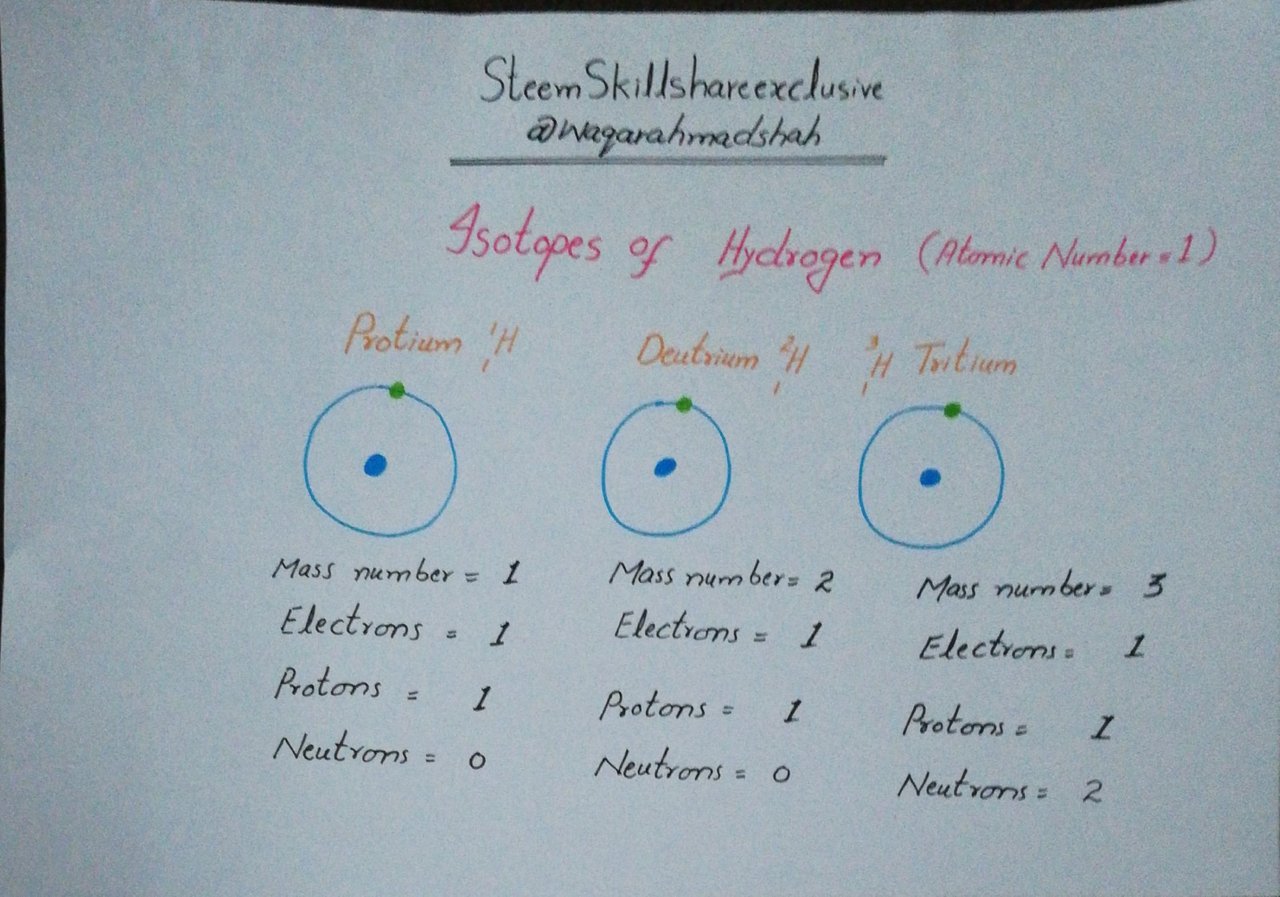 SteemSkillshareexclusive
@waqarahmadshah
Isotopes of Hydrogen (Atomic Number = 1)
Protium ¹₁H
Deutrium ²₁H
³₁H Tritium
Mass number = 1
Electrons = 1
Protons = 1
Neutrons = 0
Mass number = 2
Electrons = 1
Protons = 1
Neutrons = 0
Mass number = 3
Electrons = 1
Protons = 1
Neutrons = 2